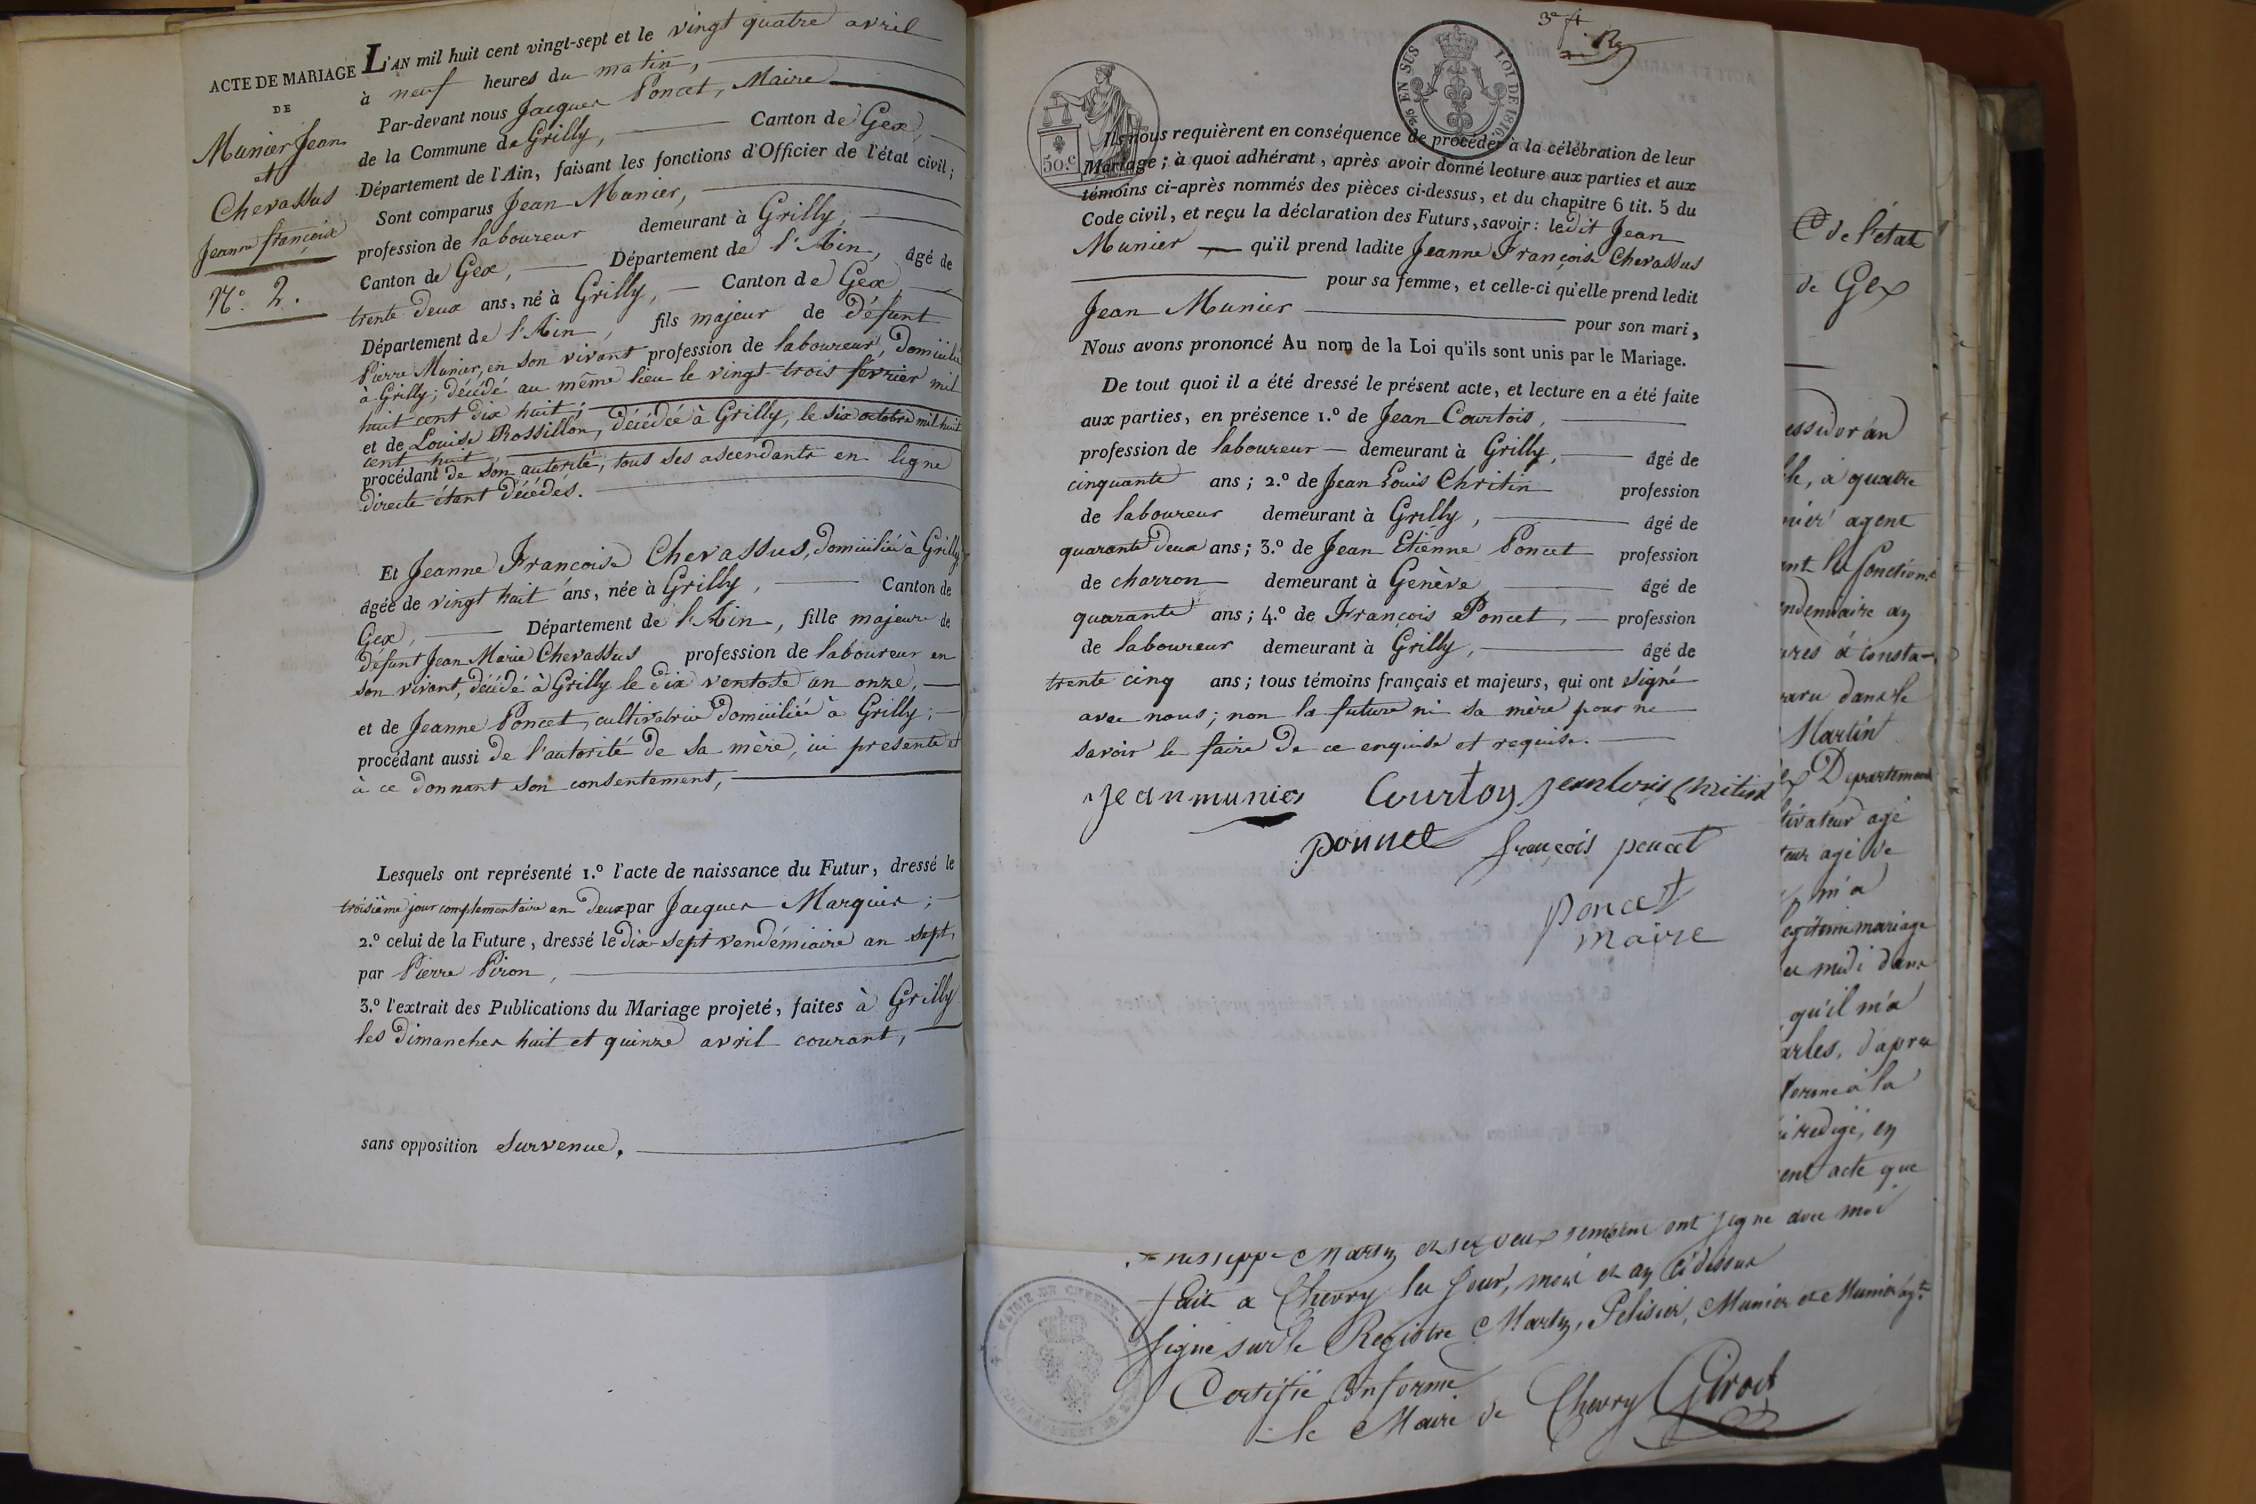 ACTE DE MARIAGE
DE
Munier Jean
et
Chevassus
Jeanne françoise
N.º 2.
L'AN mil huit cent vingt-sept et le vingt quatre avril
à neuf heures du matin,
Par-devant nous Jacques Poncet, Maire
de la Commune de Grilly, Canton de Gex,
Département de l'Ain, faisant les fonctions d'Officier de l'état civil;
Sont comparus Jean Munier,
profession de laboureur demeurant à Grilly,
Canton de Gex, Département de l'Ain, âgé de
trente deux ans, né à Grilly, Canton de Gex
Département de l'Ain, fils majeur de défunt
Pierre Munier, en son vivant profession de laboureur, domicilié
à Grilly; décédé au même lieu le vingt trois fevrier mil
huit cent dix huit;
et de Louise Rossillon, décédée à Grilly, le six octobre mil huit
cent huit
procédant de son autorité, tous ses ascendants en ligne
directe étant décédés.
Et Jeanne Francoise Chevassus, domiciliée à Grilly,
âgée de vingt huit ans, née à Grilly, Canton de
Gex, Département de l'Ain, fille majeure de
défunt Jean Marie Chevassus profession de laboureur en
son vivant, décédé à Grilly le dix ventose an onze,
et de Jeanne Poncet, cultivatrice domiciliée à Grilly;
procédant aussi de l'autorité de sa mère, ici presente et
à ce donnant son consentement,
Lesquels ont représenté 1.º l'acte de naissance du Futur, dressé le
troisième jour complementaire an deux par Jacques Marquis;
2.º celui de la Future, dressé le dix-sept vendémiaire an sept,
par Pierre Piron,
3.º l'extrait des Publications du Mariage projeté, faites à Grilly
les dimanches huit et quinze avril courant,
sans opposition survenue.
3e f
EN SUS LOI DE 1816.
50.c
Ils nous requièrent en conséquence de procéder à la célébration de leur
Mariage; à quoi adhérant, après avoir donné lecture aux parties et aux
témoins ci-après nommés des pièces ci-dessus, et du chapitre 6 tit. 5 du
Code civil, et reçu la déclaration des Futurs, savoir: ledit Jean
Munier qu'il prend ladite Jeanne Françoise Chevassus
pour sa femme, et celle-ci qu'elle prend ledit
Jean Munier pour son mari,
Nous avons prononcé Au nom de la Loi qu'ils sont unis par le Mariage.
De tout quoi il a été dressé le présent acte, et lecture en a été faite
aux parties, en présence 1.º de Jean Courtois,
profession de laboureur demeurant à Grilly, âgé de
cinquante ans; 2.º de Jean Louis Chritin profession
de laboureur demeurant à Grilly, âgé de
quarante deux ans; 3.º de Jean Etienne Poncet profession
de charron demeurant à Genève âgé de
quarante ans; 4.º de François Poncet, profession
de laboureur demeurant à Grilly, âgé de
trente cinq ans; tous témoins français et majeurs, qui ont signé
avec nous; non la future ni sa mère pour ne
savoir le faire de ce enquise et requise.
jean munier Courtoy jean louis Chritin
ponnet françois poncet
poncet
maire
de l'état
de Gex
essidor an
à quatre
agent
fonctions
endemiaire an
à consta-
dans le
Martin
Departement
tivateur agé
teur agé de
m'a
egitime mariage
midi dans
qu'il m'a
arles, d'apres
forme à la
redigé, en
ent acte que
ont signe avec moi
fait a Chevry les jour, mois et an ci dessus
signe sur le Registre Martin, Pelisier, Munier et Munier agt.
Certifié Conforme
le Maire de Chevry Girod
MAIRIE DE CHEVRY